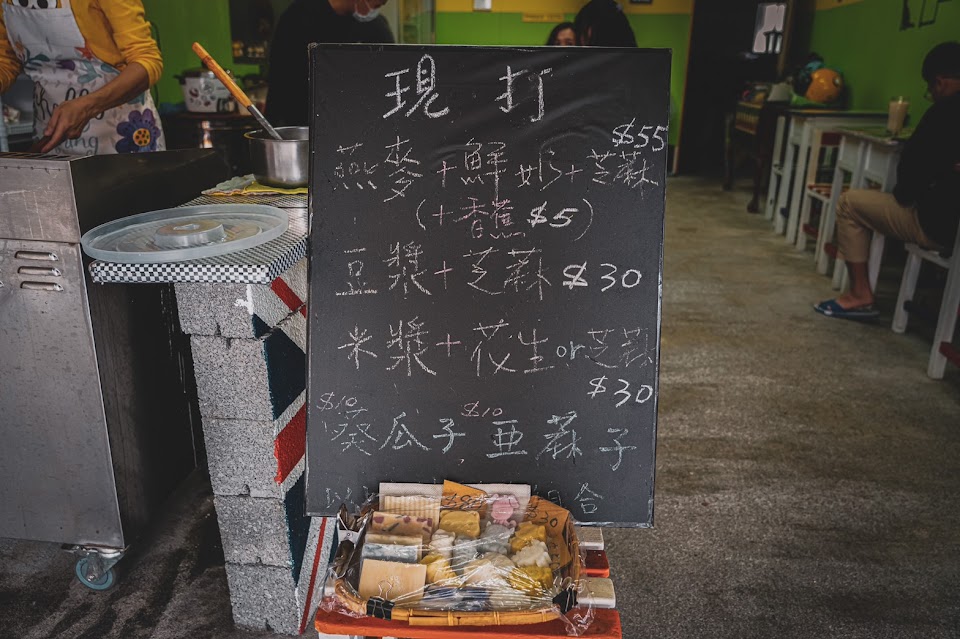 現打
$55
燕麥+鮮奶+芝蔴
(+香蕉$5)
豆漿+芝蔴 $30
米漿+花生or芝蔴
$30
$10 $10
葵瓜子 亞蔴子